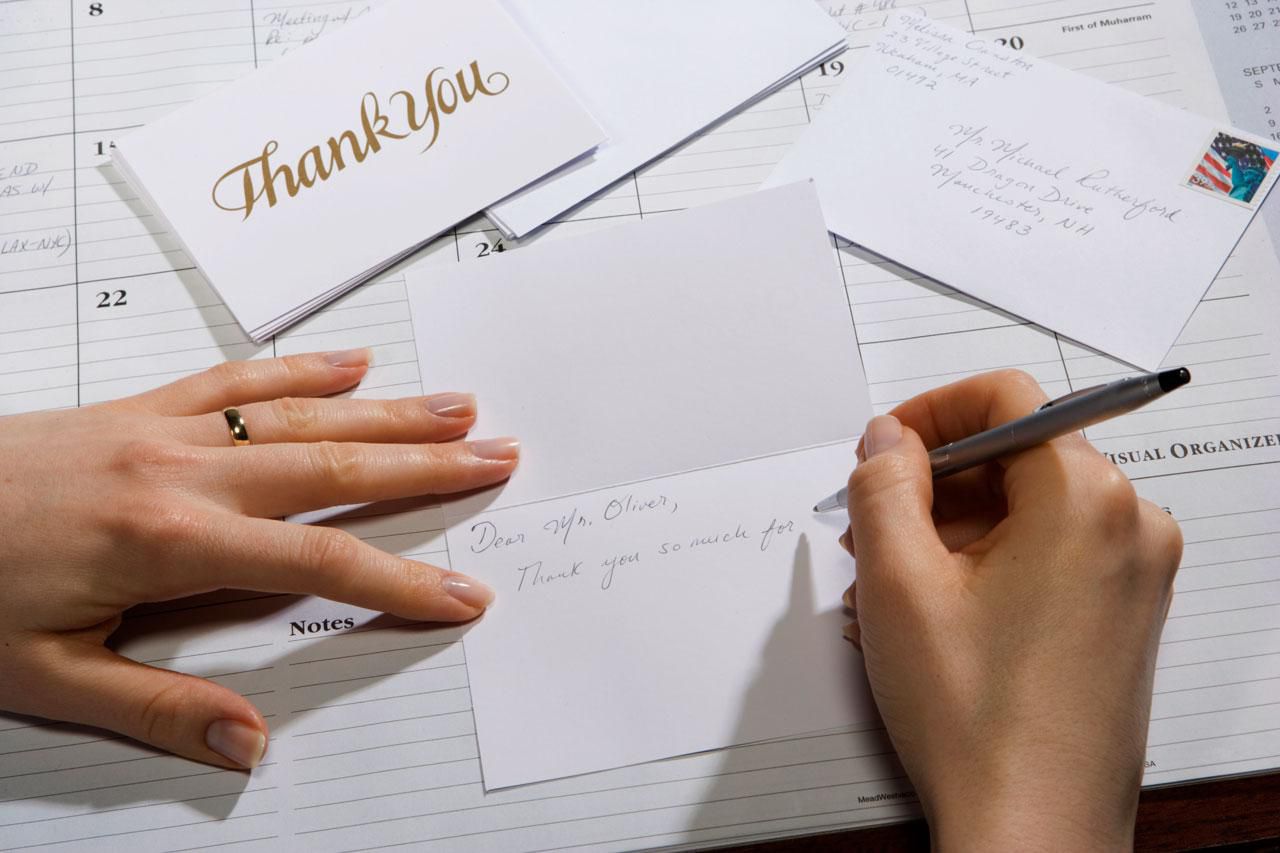 8
Meeting w/
20
First of Muharram
12 13
19 20 21
26 27 28
Thank You
19
Melissa
23 Village Street
MA
01492
SEPTE
S M
2
9
Mr. Michael Rutherford
41 Dragon Drive
Manchester, NH
19483
37
END
AS w/
LAX-NYC)
22
24
VISUAL ORGANIZE
Dear Mr. Oliver,
Thank you so much for
Notes
MeadWestvaco
SA